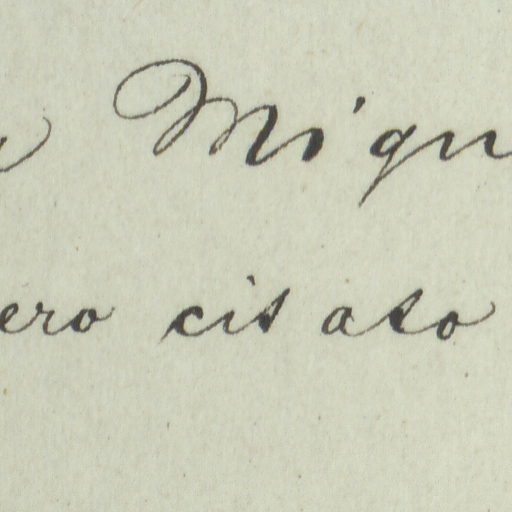 Miqu
ero cit ato